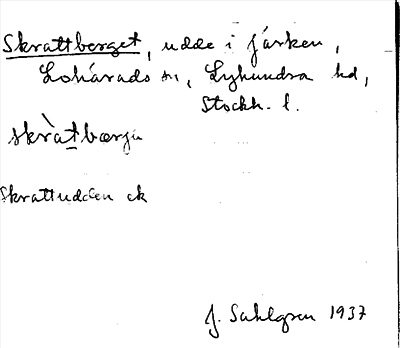 Skrattberget, udde i Järken,
Lohärads sn, Lyhundra hd,
Stockh. l.
skràtbærjə
Skrattudden ek
J. Sahlgren 1937